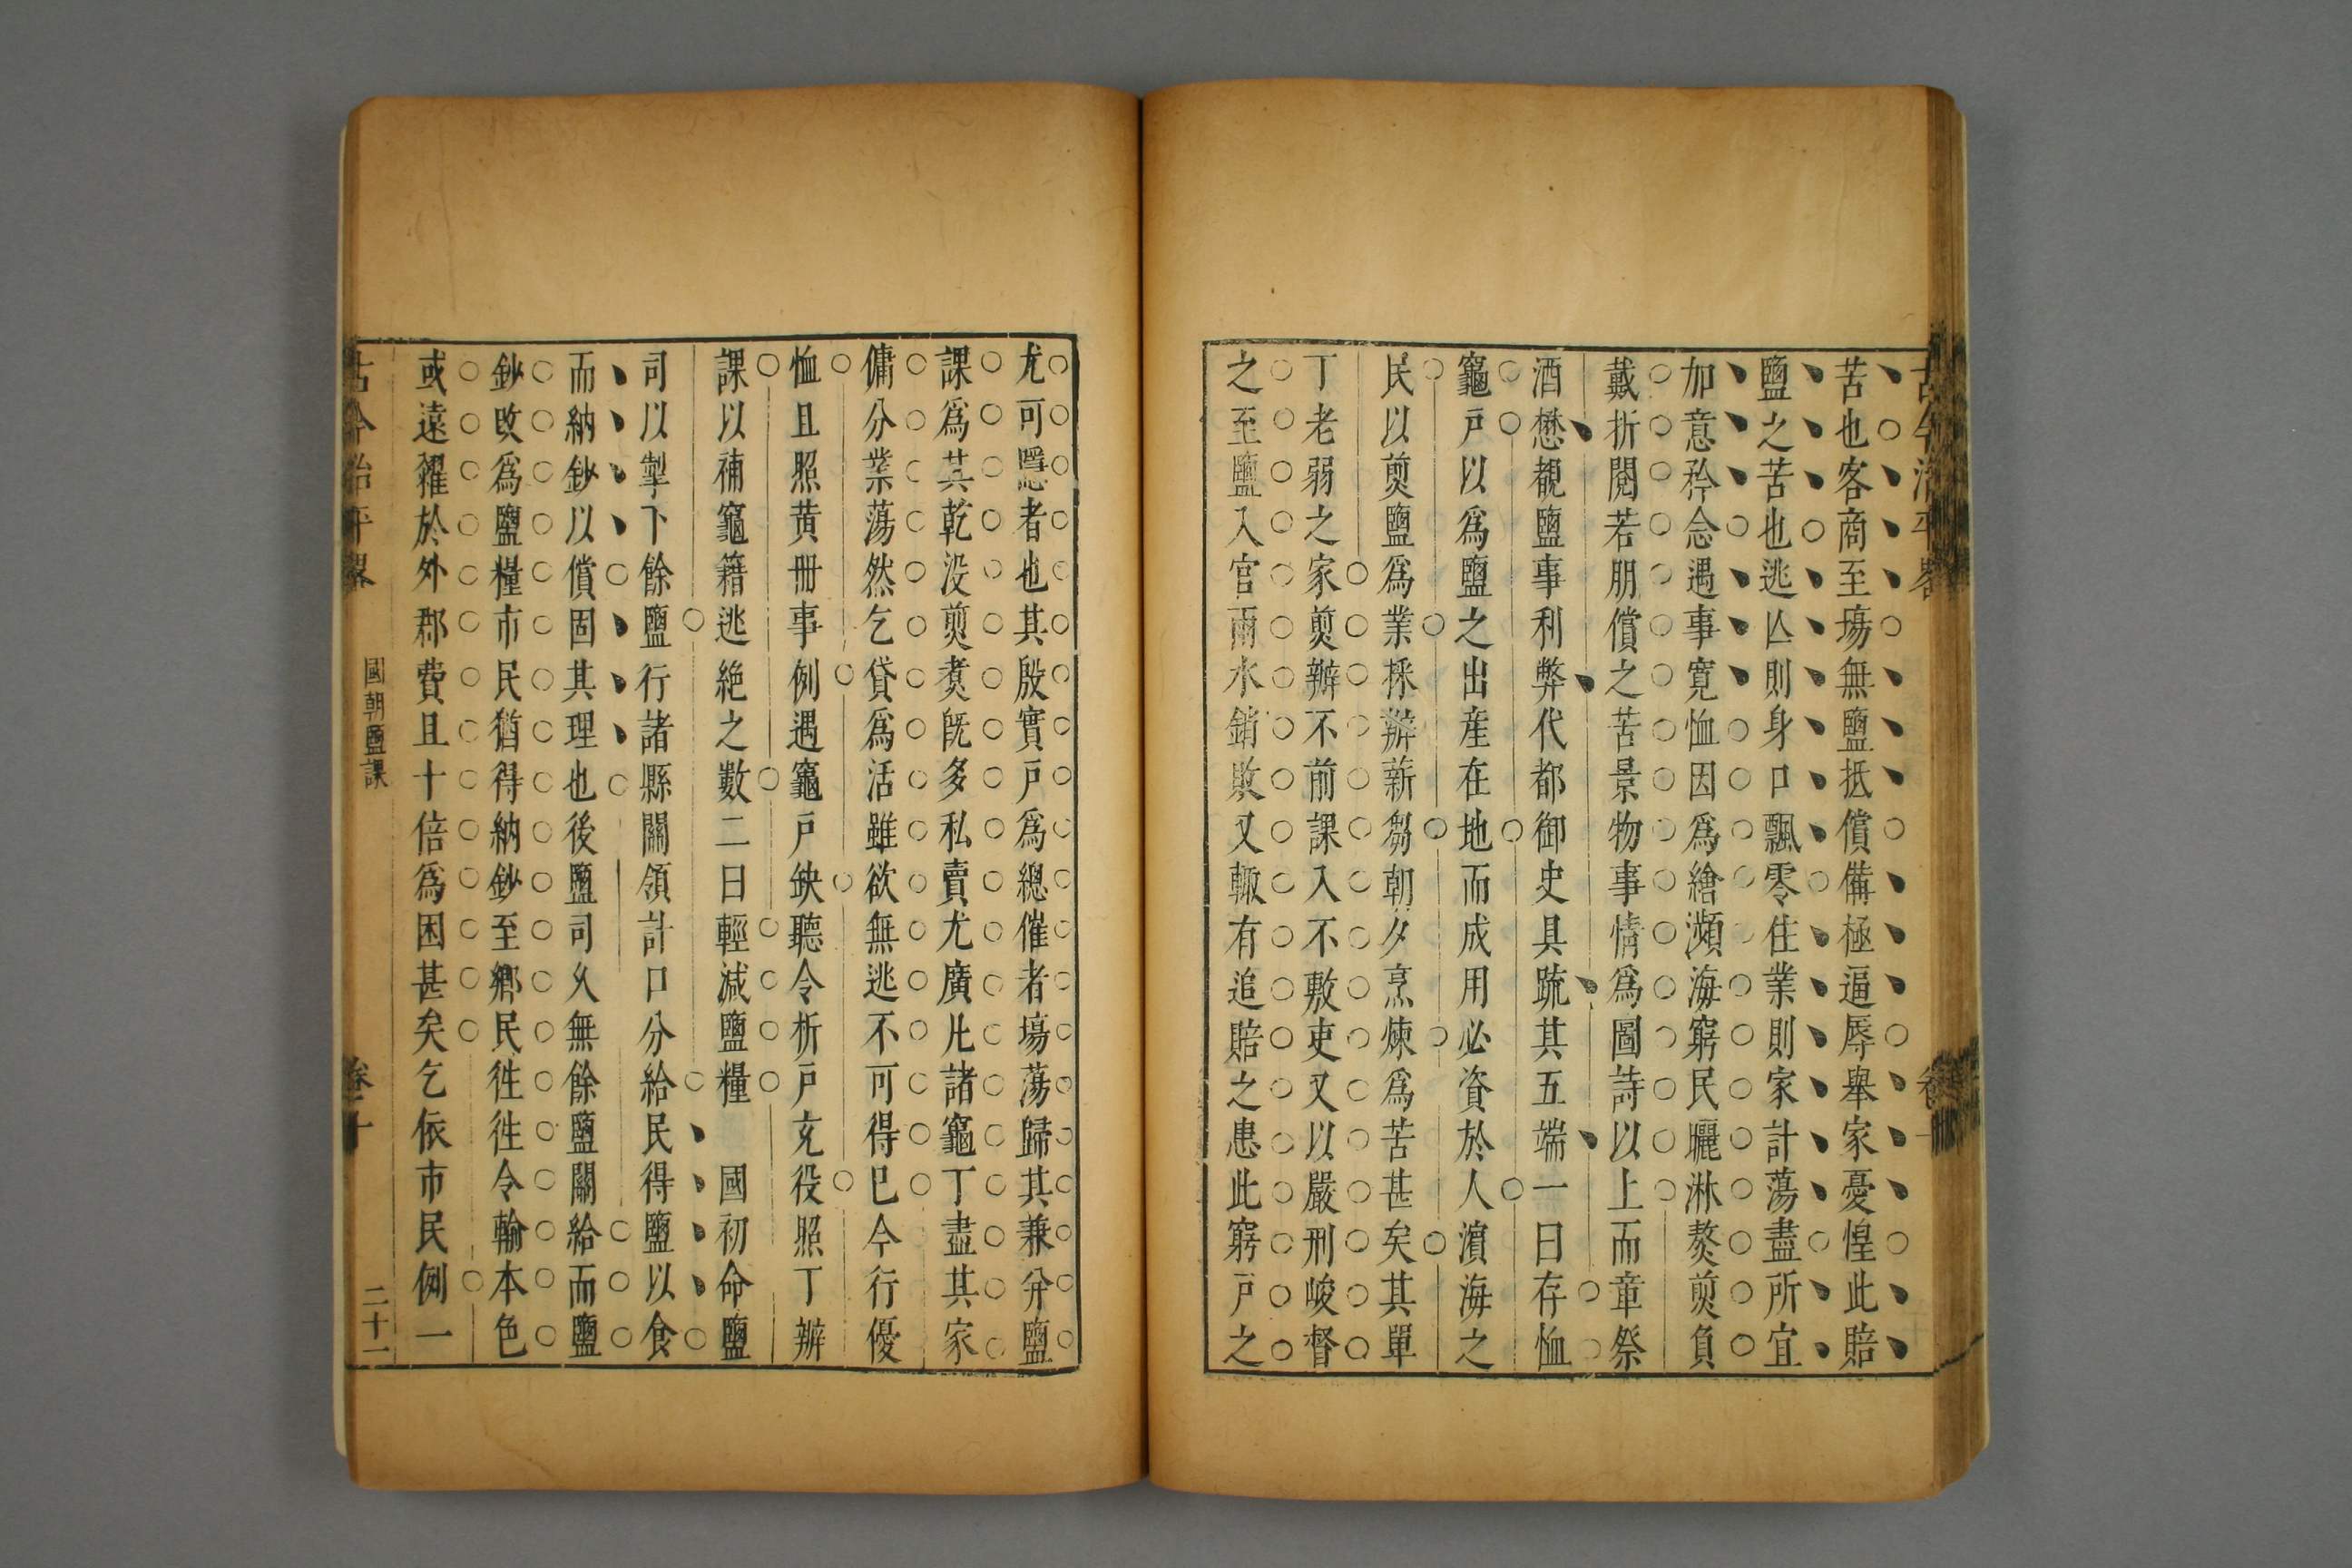 苦也客商至塲無鹽抵償備極逼辱舉家憂惶此賠
鹽之苦也逃亾則身口飄零住業則家計蕩盡所宜
加意矜念遇事寛恤因爲繪瀕海窮民曬淋熬煎負
戴折閱若朋償之苦景物事情爲圖詩以上而章祭
酒懋覩鹽事利弊代都御史具疏其五端一曰存恤
竈戸以爲鹽之出産在地而成用必資於人濵海之
民以煎鹽爲業採辦薪芻朝夕烹煉爲苦甚矣其單
丁老弱之家煎辦不前課入不敷吏又以嚴刑峻督
之至鹽入官雨水銷敗又輙有追賠之患此窮戸之
尤可隱者也其殷實戸爲總催者塲蕩歸其兼分鹽
課爲其乾没煎煑既多私賣尤廣凡諸竈丁盡其家
傭分業蕩然乞貸爲活雖欲無逃不可得巳今行優
恤且照黄冊事例遇竈戸缺聽令析戸充役照丁辦
課以補竈籍逃絶之數二曰輕減鹽糧 國初命鹽
司以掣下餘鹽行諸縣關領計口分給民得鹽以食
而納鈔以償固其理也後鹽司久無餘鹽關給而鹽
鈔改爲鹽糧市民猶得納鈔至鄉民徃徃令輸本色
或遠糴於外郡費且十倍爲困甚矣乞依市民例一
古今治平畧
國朝鹽課
卷十
二十一